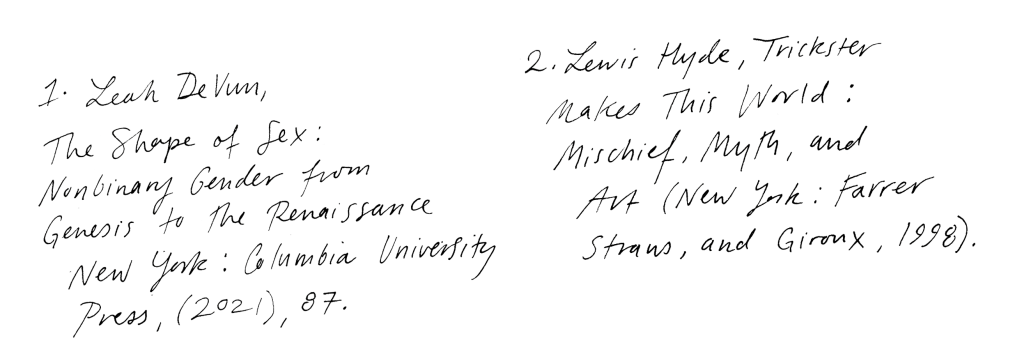 1. Leah DeVun,
The Shape of Sex:
Nonbinary Gender from
Genesis to the Renaissance
New York: Columbia University
Press, (2021), 87.
2. Lewis Hyde, Trickster
Makes This World:
Mischief, Myth, and
Art (New York: Farrer
Straus, and Giroux, 1998).